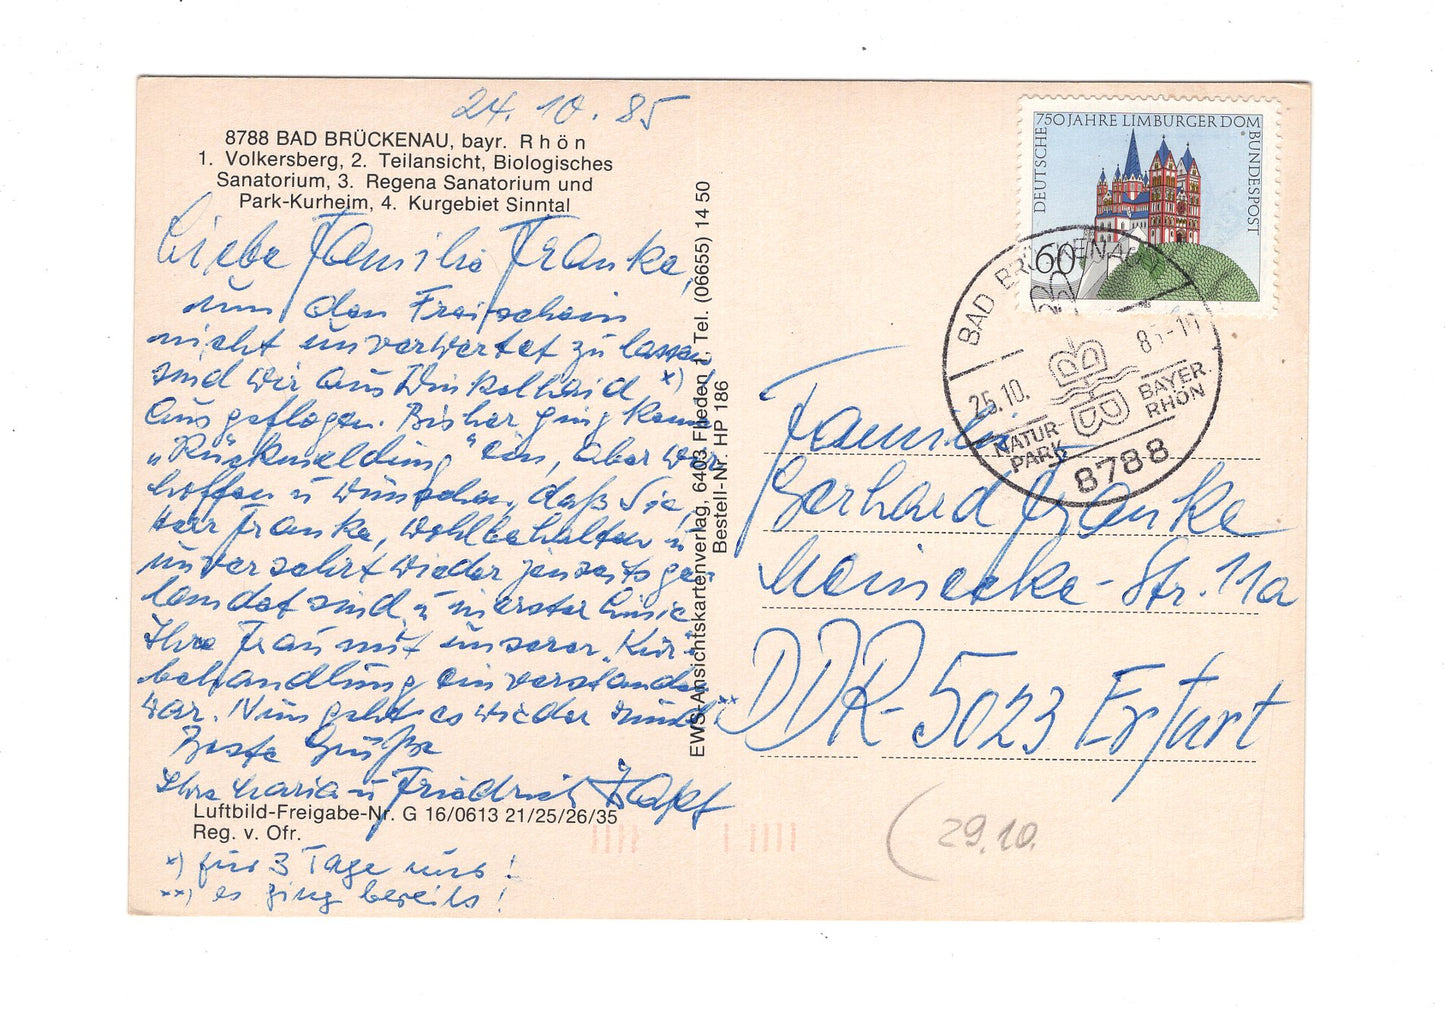 24.10.85
8788 BAD BRÜCKENAU, bayr. Rhön
1. Volkersberg, 2. Teilansicht, Biologisches
Sanatorium, 3. Regena Sanatorium und
Park-Kurheim, 4. Kurgebiet Sinntal
Liebe Familie Franke,
um den Freischein
nicht unverwertet zu lassen
sind wir aus Winkelhaid *)
ausgeflogen. Bisher ging keine
„Rückmeldung" ein, aber wir
hoffen u wünschen, daß Sie,
Herr Franke, wohlbehalten u
unversehrt wieder jenseits ge-
landet sind u in erster Linie
Ihre Frau mit unserer „Kur-
behandlung einverstanden
war. Nun geht es wieder rund! **
Beste Grüße
Ihre Maria u Friedrich Zapf
Luftbild-Freigabe-Nr. G 16/0613 21/25/26/35
Reg. v. Ofr.
*) für 3 Tage nur!
**) es ging bereits!
EWS-Ansichtskartenverlag, 6403 Flieden 1, Tel. (06655) 14 50
Bestell-Nr. HP 186
750 JAHRE LIMBURGER DOM
DEUTSCHE
BUNDESPOST
60
BAD BRÜCKENAU
25.10.
85-16
NATUR-
PARK
BAYER.
RHÖN
8788
Familie
Gerhard Franke
Meinecke-Str. 11a
DDR-5023 Erfurt
(29.10.